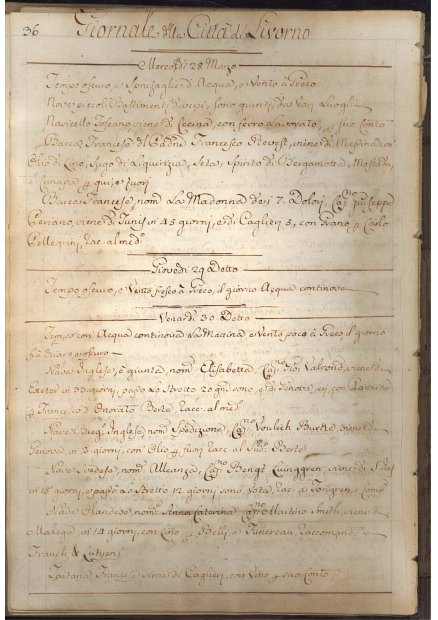 36 Giornale della Città di Livorno
Mercordi 28 Marzo
Tempo oscuro, e Spruzaglie d'Acqua, e Vento à Greco
Nove piccoli Bastimenti diversi, sono giunti da Vari Luoghi
Navicello Toscano, viene di Cecina, con ferro Lavorato, suo Conto
Barca Francese di Padne Francesco Prevest, viene di Messina con
Olio di Lino, Sugo di Liquirizia, Seta, Spirito di Bergamotta,
Canapa qui e fuori
Barca Francese, nom La Madonna dei 7. Dolori, Capno Giuseppe
viene di Tunis in 45 giorni, e di Caglieri 5, con Grano Carlo
Pellegrini, Rac. al med
Giovedi 29 Detto
Tempo oscuro, e Vento fresco à Greco, il giorno Acqua continova
Venardi 30 Detto
Tempo con Acqua continova La Matina e Vento poco à Greco il giorno
Nave Inglese, è giunta, nom Elisabetta, Capno Gio Valrond, viene di
Exeter in 33 giorni, passò Lo Stretto 20 gni sono, e di Genova jeri, con Pannine
Francesco d'Onorato Berte Rac. al med
Nave Inglese, nom Spedizione, Capno Burke, viene di
Genova, in 3 giorni, con Olio fuori Rac. al Sud Berte
Nave Svedese, nom Alleanza, Capno Bengt viene di
in 15 giorni, e passò Lo Stretto 12 giorni sono, Vota, Rac. a Tongren, e Comp
Nave Olandese, nom Anna Caterina Capno Martino Smith, viene di
Malega, in 14 giorni, con Lino Raccomand. a
Franch & Lutyens
Tartana Francese viene di Caglieri, con Vino suo Conto